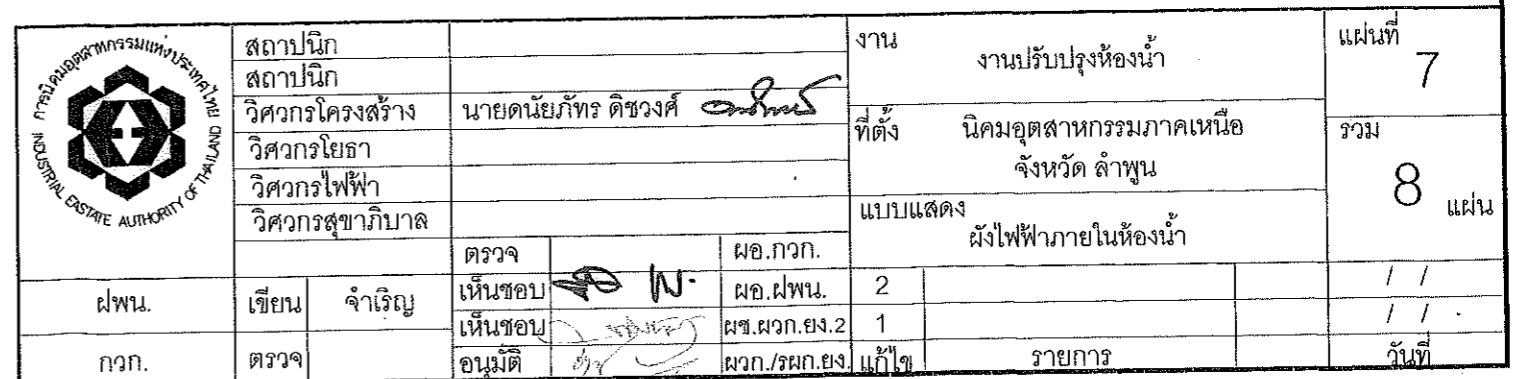 การนิคมอุตสาหกรรมแห่งประเทศไทย
INDUSTRIAL EASTATE AUTHORITY OF THAILAND
ฝพน.
กวก.
สถาปนิก
สถาปนิก
วิศวกรโครงสร้าง นายดนัยภัทร ดิชวงศ์
วิศวกรโยธา
วิศวกรไฟฟ้า
วิศวกรสุขาภิบาล
เขียน จำเริญ
ตรวจ
ตรวจ ผอ.กวก.
เห็นชอบ ผอ.ฝพน.
เห็นชอบ ผช.ผวก.ยง.2
อนุมัติ ผวก./รผก.ยง.
งาน
งานปรับปรุงห้องน้ำ
ที่ตั้ง นิคมอุตสาหกรรมภาคเหนือ
จังหวัด ลำพูน
แบบแสดง
ผังไฟฟ้าภายในห้องน้ำ
2 / /
1 / /
แก้ไข รายการ วันที่
แผ่นที่
7
รวม
8 แผ่น